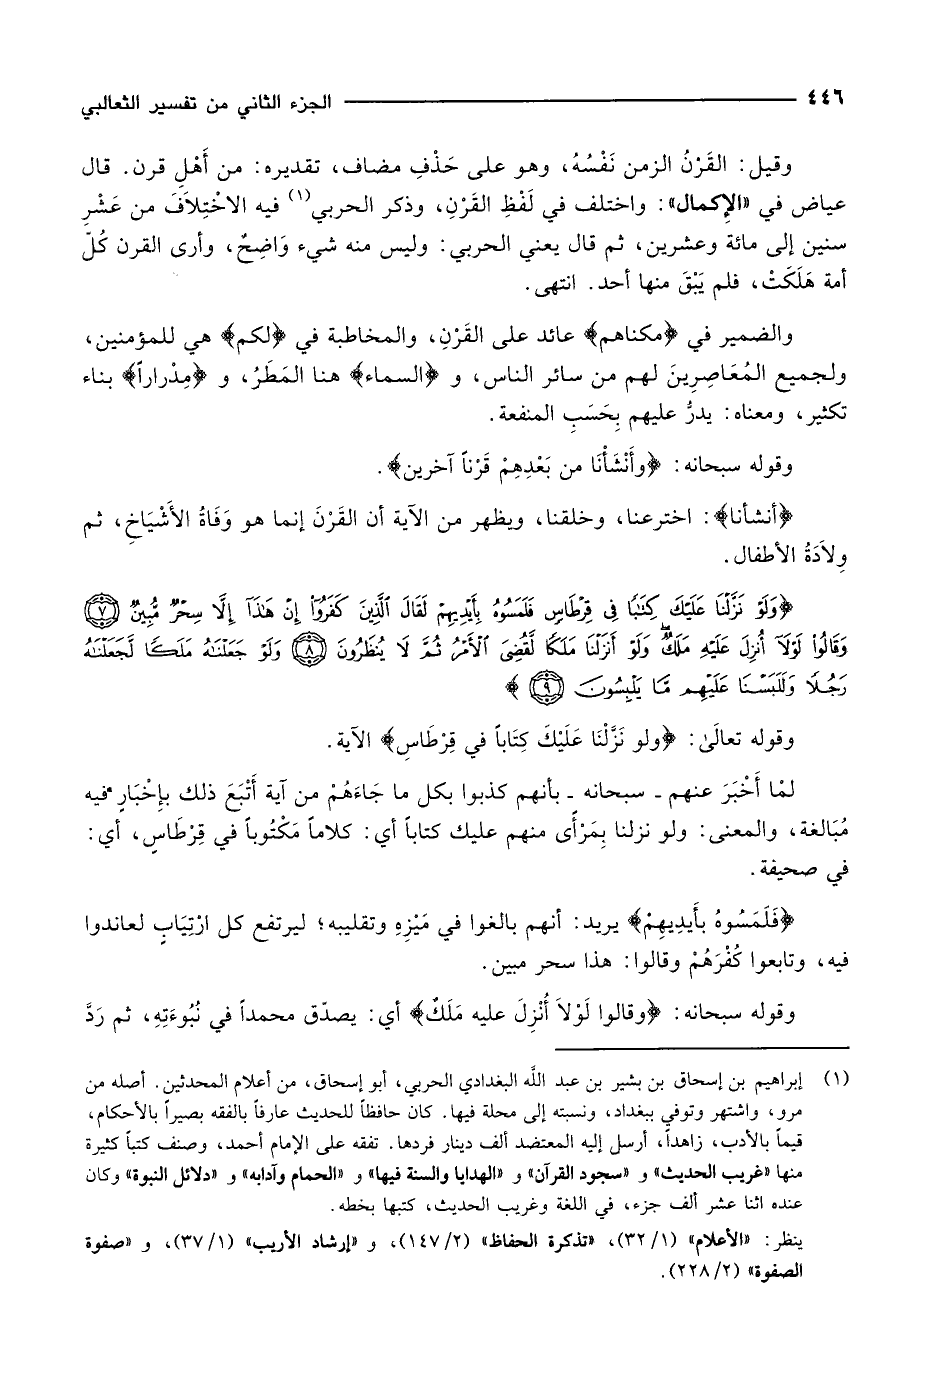 ٤٤٦ ــــــــــــــــــــــــــــــــــــ الجزء الثاني من تفسير الثعالبي
وقيل: القَرْنُ الزمن نَفْسُهُ، وهو على حَذْفِ مضاف، تقديره: من أَهْلِ قرن. قال
عياض في «الإكمال»: واختلف في لَفْظِ القَرْنِ، وذكر الحربي(١) فيه الاخْتِلاَفَ من عَشْرِ
سنين إلى مائة وعشرين، ثم قال يعني الحربي: وليس منه شيء وَاضِحٌ، وأرى القرن كُلّ
أمة هَلَكَتْ، فلم يَبْقَ منها أحد. انتهى.
والضمير في ﴿مكناهم﴾ عائد على القَرْنِ، والمخاطبة في ﴿لكم﴾ هي للمؤمنين،
ولجميع المُعَاصِرِينَ لهم من سائر الناس، و ﴿السماء﴾ هنا المَطَرُ، و ﴿مِدْراراً﴾ بناء
تكثير، ومعناه: يدرُّ عليهم بِحَسَبِ المنفعة.
وقوله سبحانه: ﴿وأَنْشَأْنَا من بَعْدِهِمْ قَرْناً آخرين﴾.
﴿أنشأنا﴾: اخترعنا، وخلقنا، ويظهر من الآية أن القَرْنَ إنما هو وَفَاةُ الأَشْيَاخِ، ثم
وِلاَدَةُ الأطفال.
﴿وَلَوْ نَزَّلْنَا عَلَيْكَ كِتَٰبًا فِي قِرْطَاسٍ فَلَمَسُوهُ بِأَيْدِيهِمْ لَقَالَ ٱلَّذِينَ كَفَرُوٓا۟ إِنْ هَٰذَآ إِلَّا سِحْرٌ مُّبِينٌ ٧
وَقَالُوا۟ لَوْلَآ أُنزِلَ عَلَيْهِ مَلَكٌ ۖ وَلَوْ أَنزَلْنَا مَلَكًا لَّقُضِيَ ٱلْأَمْرُ ثُمَّ لَا يُنظَرُونَ ٨ وَلَوْ جَعَلْنَٰهُ مَلَكًا لَّجَعَلْنَٰهُ
رَجُلًا وَلَلَبَسْنَا عَلَيْهِم مَّا يَلْبِسُونَ ٩ ﴾
وقوله تعالَىٰ: ﴿ولو نَزَّلْنَا عَلَيْكَ كِتَاباً في قِرْطَاسٍ﴾ الآية.
لمَّا أَخْبَرَ عنهم ـ سبحانه ـ بأنهم كذبوا بكل ما جَاءَهُمْ من آية أَتْبَعَ ذلك بإِخْبَارٍ فيه
مُبَالغة، والمعنى: ولو نزلنا بِمَرْأى منهم عليك كتاباً أي: كلاماً مَكْتُوباً في قِرْطَاسٍ، أي:
في صحيفة.
﴿فَلَمَسُوهُ بأَيدِيهِمْ﴾ يريد: أنهم بالغوا في مَيْزِهِ وتقليبه؛ ليرتفع كل ارْتِيَابٍ لعاندوا
فيه، وتابعوا كُفْرَهُمْ وقالوا: هذا سحر مبين.
وقوله سبحانه: ﴿وقالوا لَوْلاَ أُنْزِلَ عليه مَلَكٌ﴾ أي: يصدّق محمداً في نُبُوءَتِهِ، ثم رَدَّ
(١) إبراهيم بن إسحاق بن بشير بن عبد اللَّه البغدادي الحربي، أبو إسحاق، من أعلام المحدثين. أصله من
مرو، واشتهر وتوفي ببغداد، ونسبته إلى محلة فيها. كان حافظاً للحديث عارفاً بالفقه بصيراً بالأحكام،
قيماً بالأدب، زاهداً، أرسل إليه المعتضد ألف دينار فردها. تفقه على الإمام أحمد، وصنف كتباً كثيرة
منها «غريب الحديث» و «سجود القرآن» و «الهدايا والسنة فيها» و «الحمام وآدابه» و «دلائل النبوة» وكان
عنده اثنا عشر ألف جزء، في اللغة وغريب الحديث، كتبها بخطه.
ينظر: «الأعلام» (٣٢/١)، «تذكرة الحفاظ» (١٤٧/٢)، و «إرشاد الأريب» (٣٧/١)، و «صفوة
الصفوة» (٢٢٨/٢).